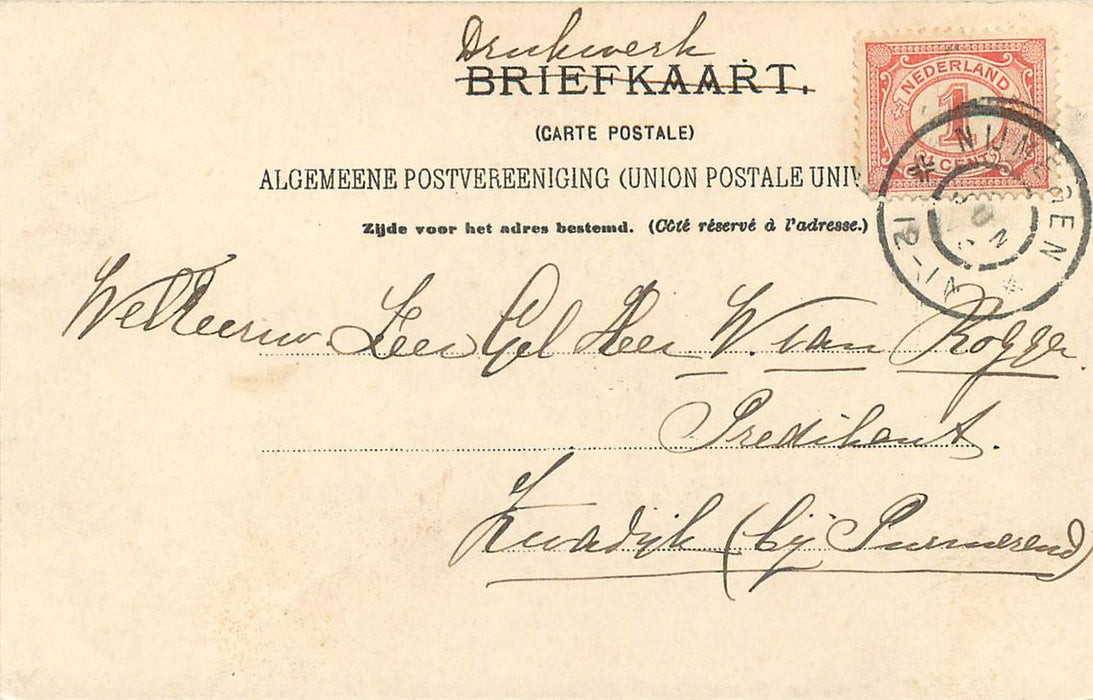 Drukwerk
BRIEFKAART.
(CARTE POSTALE)
ALGEMEENE POSTVEREENIGING (UNION POSTALE UNIV
Zijde voor het adres bestemd. (Côté réservé à l'adresse.)
NEDERLAND
1
CENT
NIJMEGEN
12-1N
WelEerw. Zeer Gel Heer W. van Rogger.
Predikant.
Kwadijk (bij Purmerend)